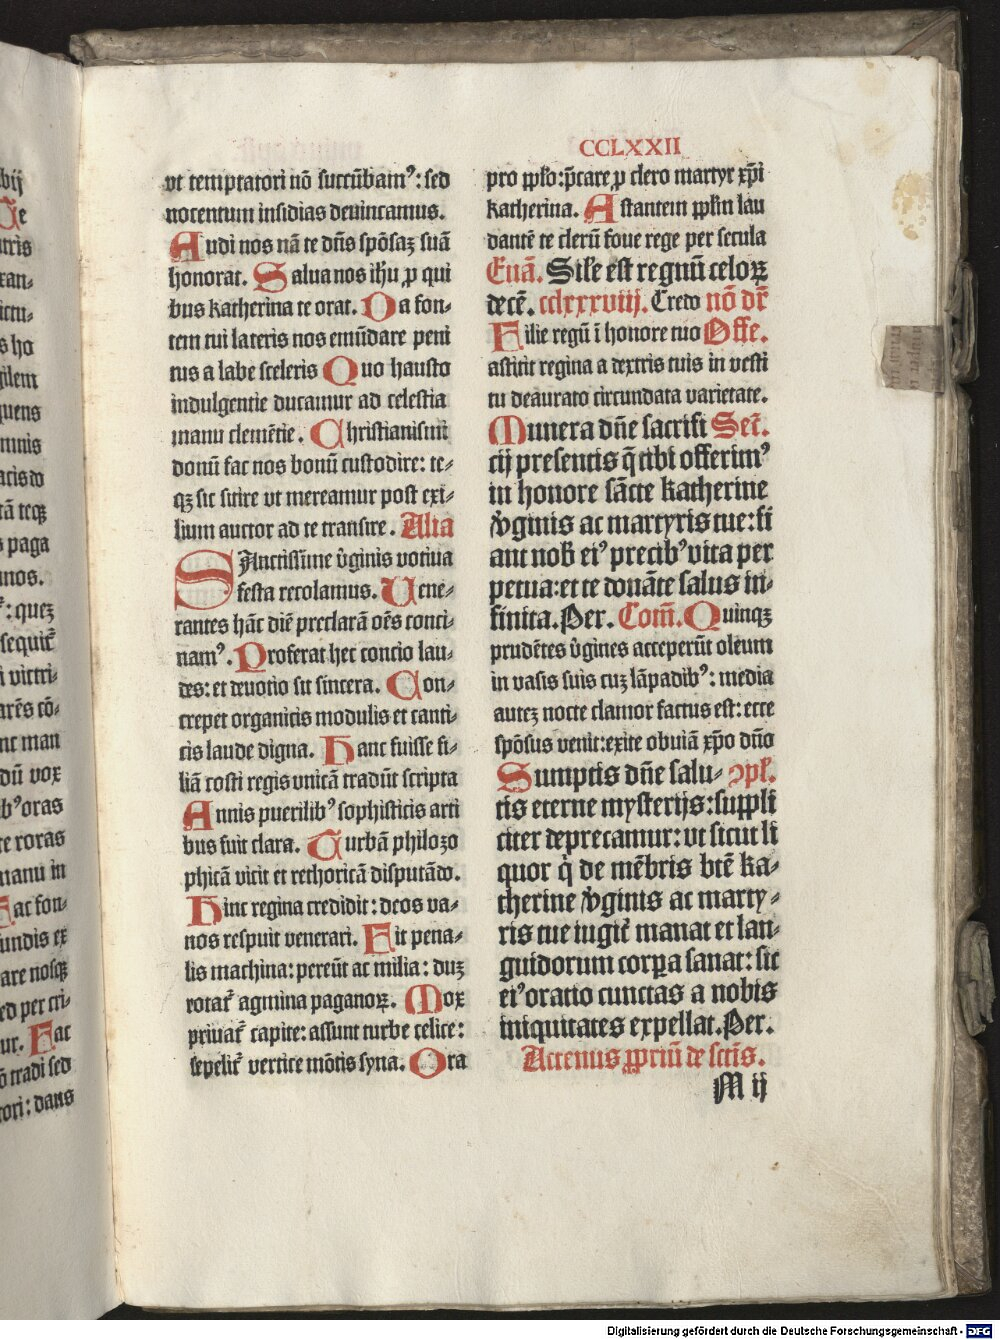 CCLXXII
vt temptatori nō succūbamꝰ: sed
nocentum insidias deuincamus.
Audi nos nā te dn̄s spōsaꝫ suā
honorat. Salua nos ih̄u ꝑ qui
bus katherina te orat. Da fon-
tem tui lateris nos emūdare peni
tus a labe sceleris Quo hausto
indulgentie ducamur ad celestia
manu clemētie. Christianismi
donū fac nos bonū custodire: te-
qꝫ sic sitire vt mereamur post exi-
lium auctor ad te transire. Alia
SAnctissime v̄ginis votiua
festa recolamus. Uene-
rantes hāc diē preclarā oēs conci-
namꝰ. Proferat hec concio lau-
des: et deuotio sit sincera. Con-
crepet organicis modulis et canti-
cis laude digna. Hanc fuisse fi-
liā costi regis vnicā tradūt scripta
Annis puerilibꝰ sophisticis arti
bus fuit clara. Turbā philozo
phicā vicit et rethoricā disputādo.
Hinc regina credidit: deos va-
nos respuit venerari. Fit pena-
lis machina: pereūt ac milia: duꝫ
rotat̄ agmina paganoꝝ. Mox
priuat̄ capite: assunt turbe celice:
sepelit̄ vertice mōtis syna. Ora
pro pp̄lo: p̄care ꝑ clero martyr xp̄i
katherina. Astantem pp̄lm lau
dantē te clerū foue rege per secula
Euā. Sil̄e est regnū celoꝝ
decē. cclxxxviij. Credo nō dr̄
Filie regū ī honore tuo Offe.
astitit regina a dextris tuis in vesti
tu deaurato circundata varietate.
Munera dn̄e sacrifi Secr̄.
cij presentis q̄ tibi offerimꝰ
in honore sācte katherine
v̄ginis ac martyris tue: fi
ant nob̄ eiꝰ precibꝰ vita per
petua: et te donāte salus in-
finita. Per. Com̄. Quinqꝫ
prudētes v̄gines acceperūt oleum
in vasis suis cuꝫ lāpadibꝰ: media
auteꝫ nocte clamor factus est: ecce
spōsus venit: exite obuiā xp̄o dn̄o
Sumptis dn̄e salu- ꝯpl̄.
tis eterne mysterijs: suppli
citer deprecamur: vt sicut li
quor q̇ de mēbris btē ka-
therine v̄ginis ac marty-
ris tue iugit̄ manat et lan-
guidorum corꝑa sanat: sic
eiꝰ oratio cunctas a nobis
iniquitates expellat. Per.
Accenus ꝓpriū de sctīs.
M ij
Digitalisierung gefördert durch die Deutsche Forschungsgemeinschaft - DFG